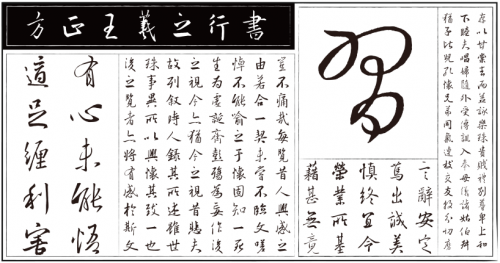 方正王羲之行書
存以甘棠去而益詠樂殊貴賤禮別尊卑上和
下睦夫唱婦隨外受傅訓入奉母儀諸姑伯叔
猶子比兒孔懷兄弟同氣連枝交友投分切磨
習
言辭安定
篤初誠美
慎終宜令
榮業所基
藉甚無竟
豈不痛哉每覽昔人興感之
由若合一契未嘗不臨文嗟
悼不能喻之于懷固知一死
生為虛誕齊彭殤為妄作後
之視今亦猶今之視昔悲夫
故列叙時人錄其所述雖世
殊事異所以興懷其致一也
後之覽者亦將有感於斯文
有心未能悟
適足纏利害